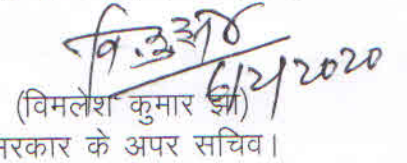 6/2/2020
(विमलेश कुमार झा)
सरकार के अपर सचिव।